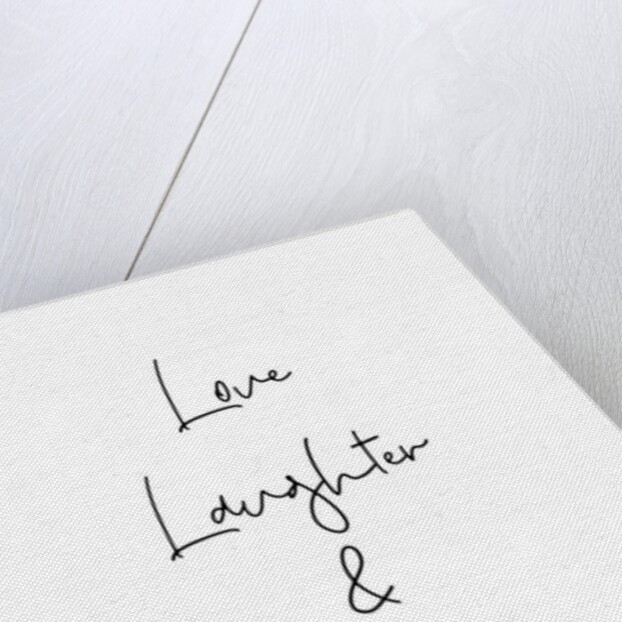 Love
Laughter
&